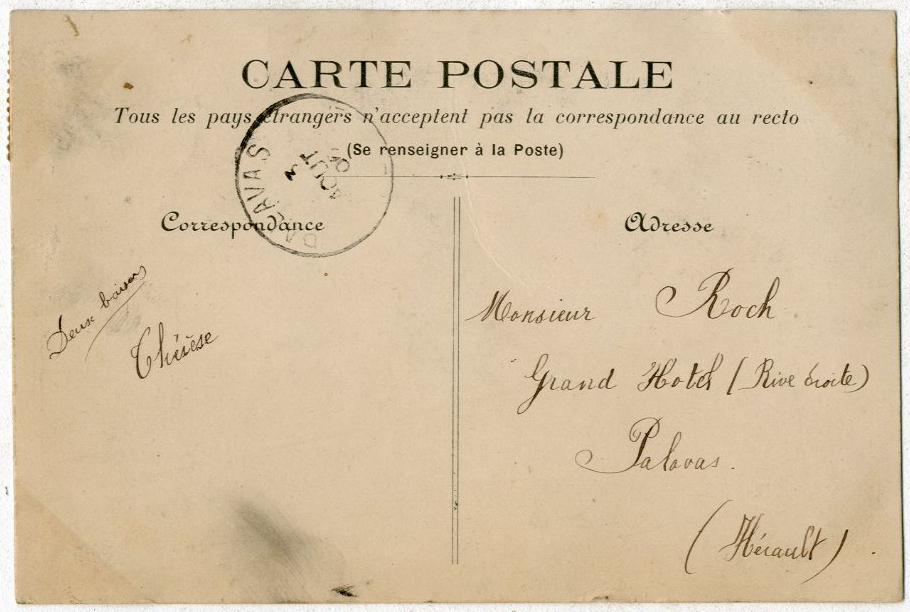 CARTE POSTALE
Tous les pays étrangers n'acceptent pas la correspondance au recto
(Se renseigner à la Poste)
PALAVAS
AOUT
Correspondance
Adresse
Deux baisers
Thérèse
Monsieur Roch
Grand Hotel (Rive droite)
Palavas.
(Hérault)